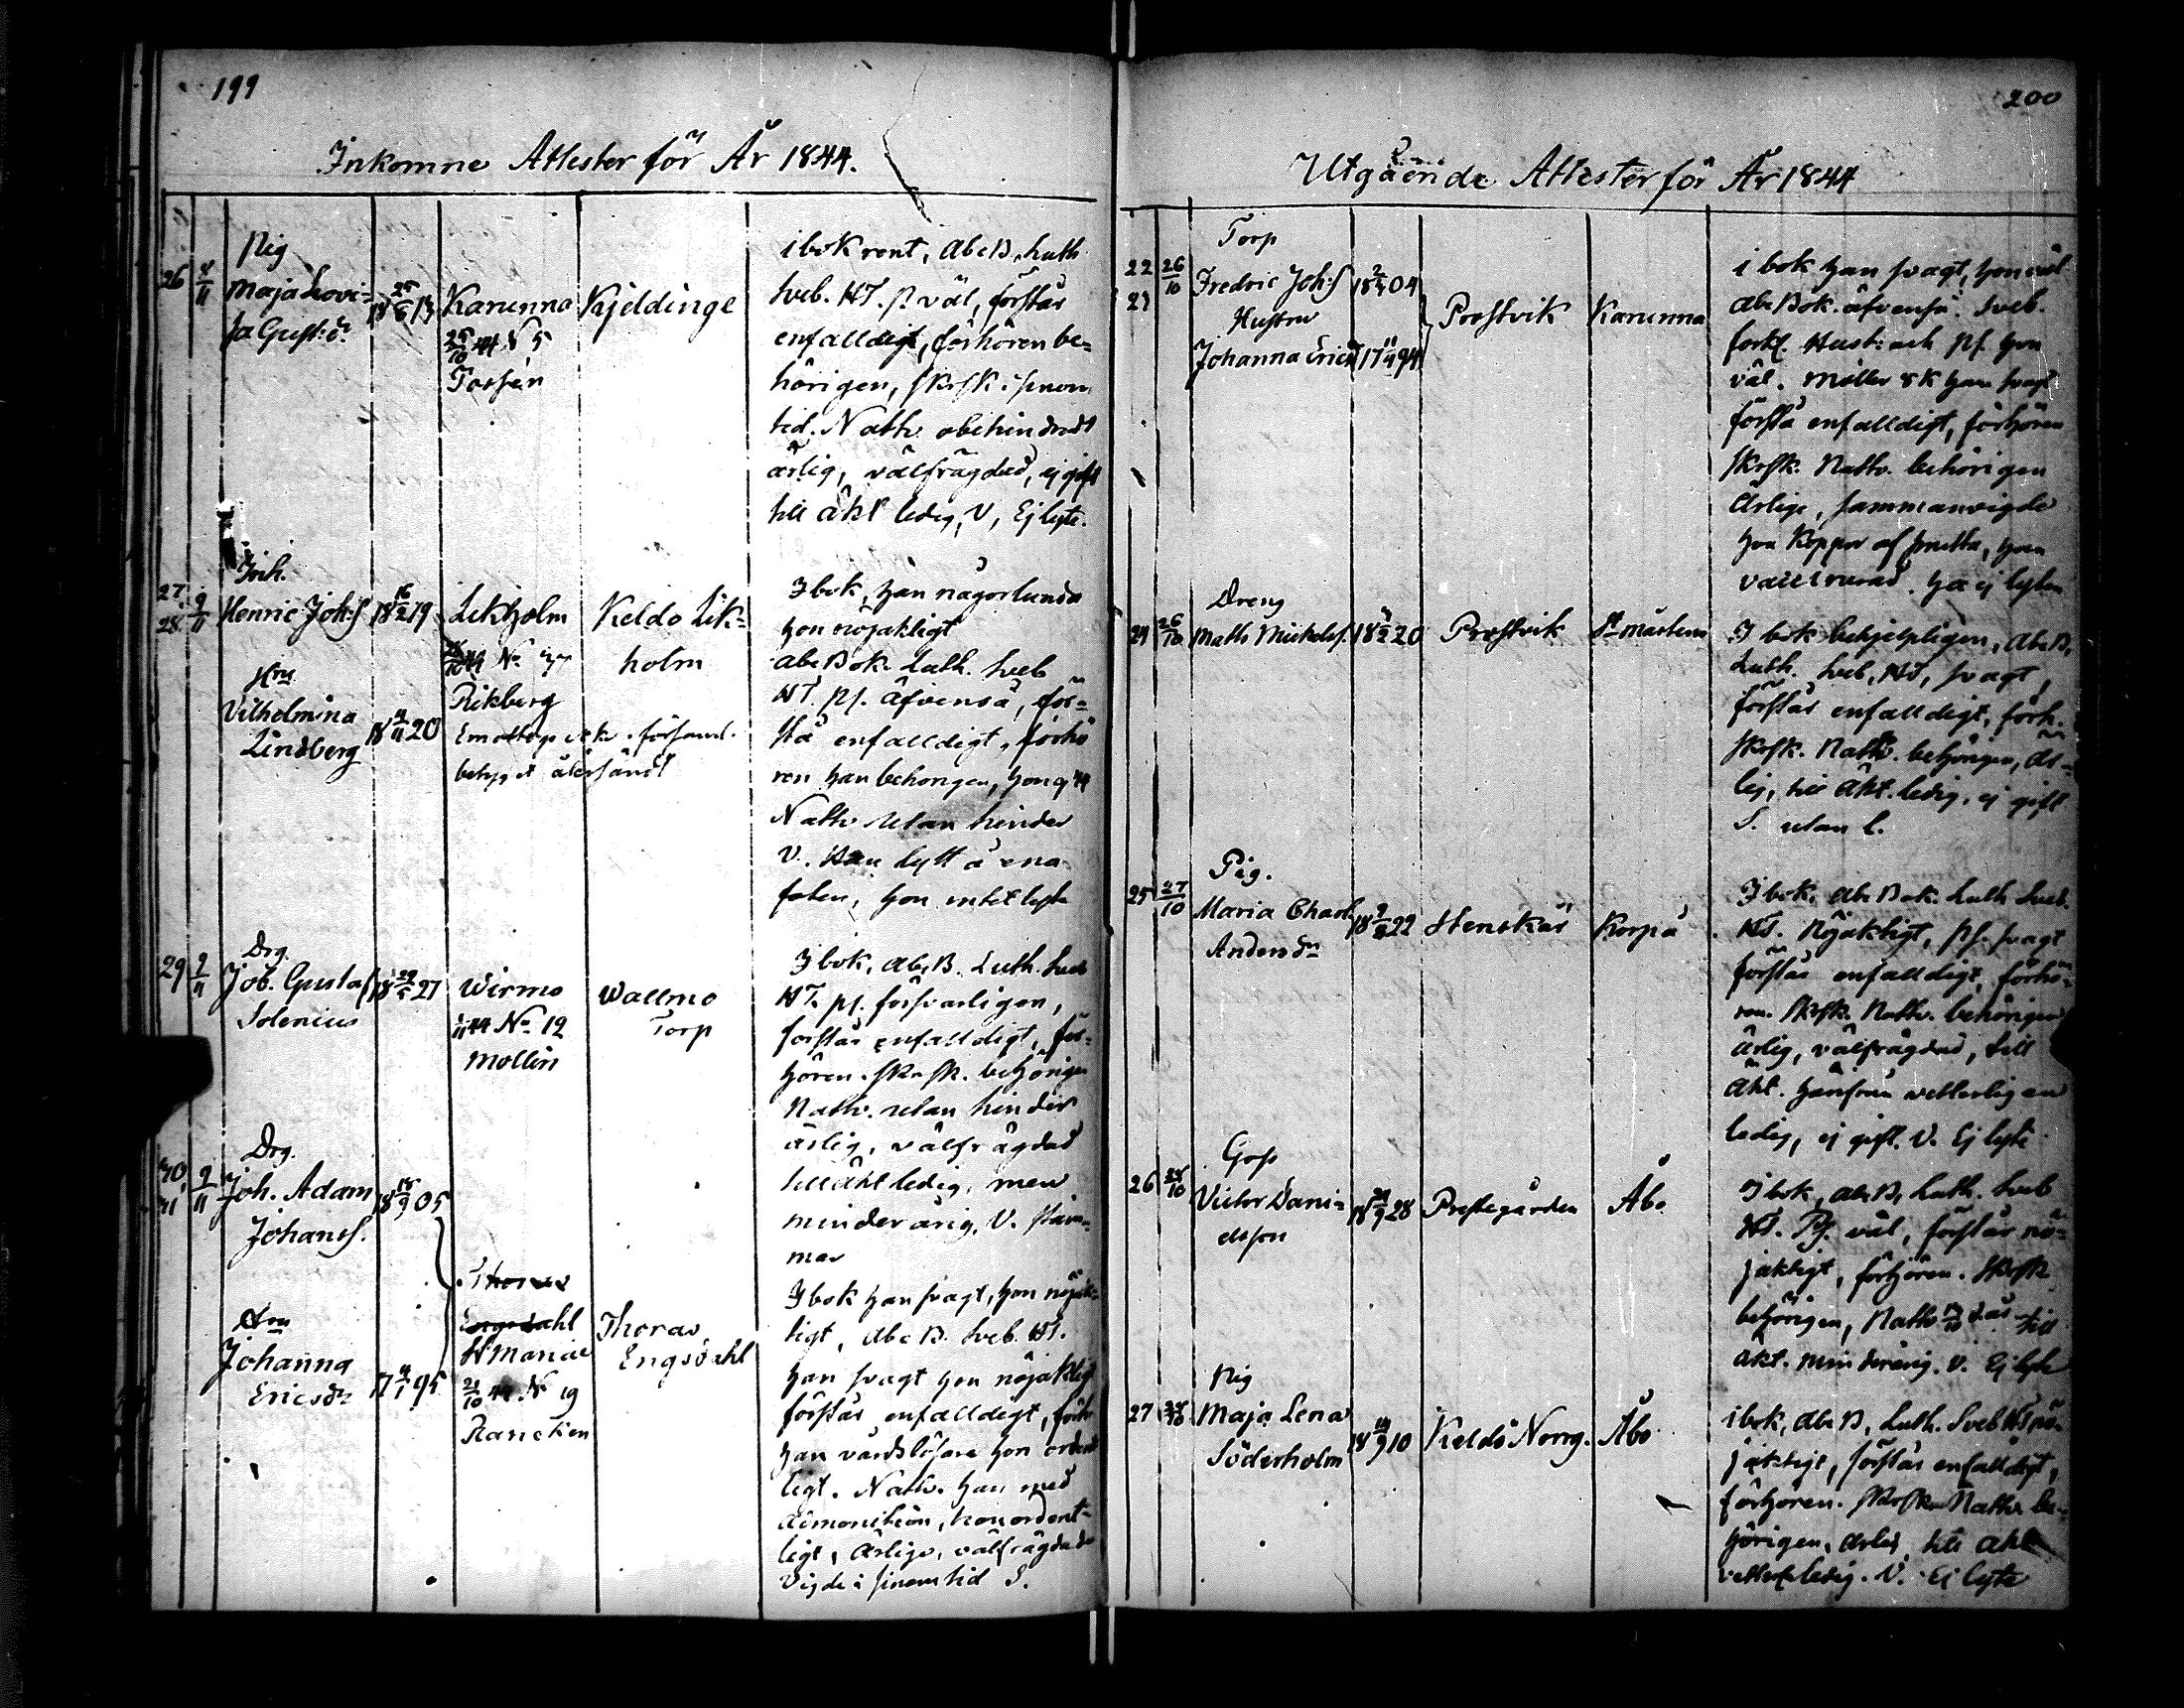 199
Inkomne Attester för År 1844.
26 8/11
Pig
Maja Lovi=
sa Gust:dr
18 25/6 13
Karunna
25/10 44 N 5
Forssén
Kjeldinge
i bok rent, Abc B. Luth
Sveb. HT. p. väl, förstår
enfalldigt, förhören be=
hörigen, skrsk i sinom
tid. Nattv obehindradt
ärlig, välfrägdad, ej gift
till äkt ledig, V, Ej lyte.
27. 28. 9/11
Inh.
Henric Johs
18 16/2 19
Lekholm
N:
Rikberg
Emottogs
betyget återsändt
Keldo Lik=
holm
Hru
Vilhelmina
Lindberg
18 4/11 20
I bok, han någorlunda
hon nöjaktigt
Abc Bok. Luth. Sveb
HT. ps. äfvenså, för=
stå enfalldigt, förhö
ren han behörigen, hon
Nattv utan hinder
V. Han lytt å ena
foten, hon intet lyte
29 9/11
Drg.
Joh. Gustaf
Solenius
18 29/5 27
Wirmo
1/11 44 No 12
Mollin
Wallmo
Torp
I bok, Abc B. Luth. Sveb
HT. ps. försvarligen,
förstår enfalldigt, för=
hören. skrsk. behörigen
Nattv. utan hinder
ärlig, välfrägdad
till äkt ledig, men
minderårig, V. stam=
mar
9/11
Drg.
Joh. Adam
Johanss.
18 18/9 05
Hru
Johanna
Ericsdr
17 4/1 95
Engsdahl
S:t Mariæ
21/10 44 N 19
Rancken
Thoras
Engsdahl
I bok han svagt, hon nöjak=
tigt, Abc B. Sveb. HT.
han svagt hon nöjaktigt
förstår enfalldigt, förhö
han vårdslösare hon ordent
ligt. Nattv. han med
admonition, hon ordent=
ligt, Ärlige, välfrägdade
Vigde i sinom tid S.
200
Utgående Attester för År 1844
22 23 26/10
Torp
Fredric Johs
Hustru
Johanna Ericsd
17 11/4 94
Prostvik
Karunna
i bok han svagt, hon väl
Abc Bok. äfvenså. Sveb.
förkl. Hust: och ps. hon
väl. Möller han svagt
förstå enfalldigt, förhören
skrsk. Nattv. behörigen
Ärlige, sammanvigde
hon Koppor af smitta, han
vaccinerad. ha ej lyten
24 26/10
Dreng
Matts Mickels.
20
Prostvik
St mårtens
I bok behjelpligen, Abc B,
Luth. Sveb, HT, svagt,
förstår enfalldigt, förh.
skrsk. Nattv. behörigen, är=
lig, till äkt. ledig, ej gift
S. utan l.
25 27/10
Pig.
Maria Charl.
Andersdr
22
Stenskär
Korpå
I bok, Abc Bok. Luth Sveb.
HT. Nöjaktigt, ps. svagt
förstår enfalldigt, förhö=
ren. skrsk. Nattv. behörigen
Ärlig, välfrägdad, till
äkt. härifrån vetterligen
ledig, ej gift. V. Ej lyte
26 28/10
Goss
Victor Dani=
elsson
28
Prestegården
Åbo
I bok, Abc B, Luth. Sveb
HT. Ps. väl, förstår nö=
jaktigt, förhören. skrsk
behörigen, Nattv till
äkt. minderårig. V. Ej lyte
27 28/10
Pig
Maja Lena
Söderholm
18 14/9 10
Keldö Norrg.
Åbo
i bok, Abc B, Luth. Sveb HT nö=
jaktigt, förstår enfalldigt,
förhören. skrsk Nattv. be=
hörigen, ärlig, till äkt
vetterl. ledig. V. Ej lyte